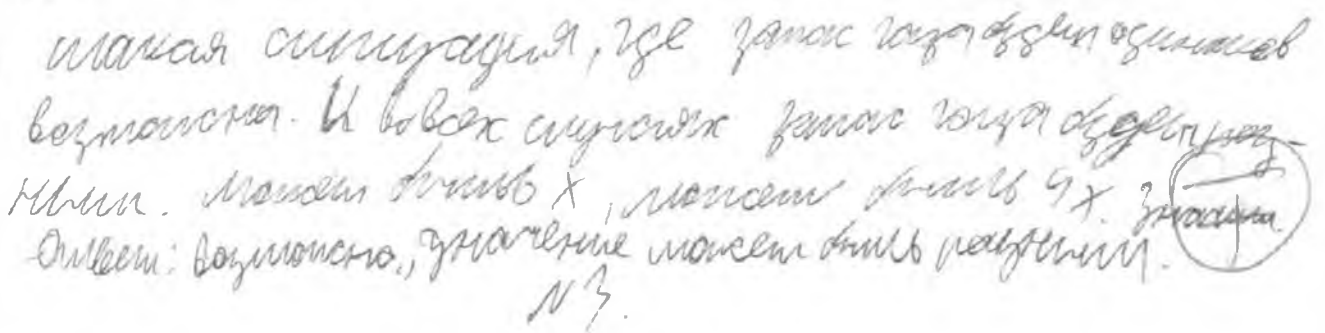 такая ситуация, где запас газа будет одинаков
возможна. И во всех случаях запас газа будет раз-
ным. Может быть x, может быть 4x.
Ответ: возможно, значение может быть разным.
N 3.